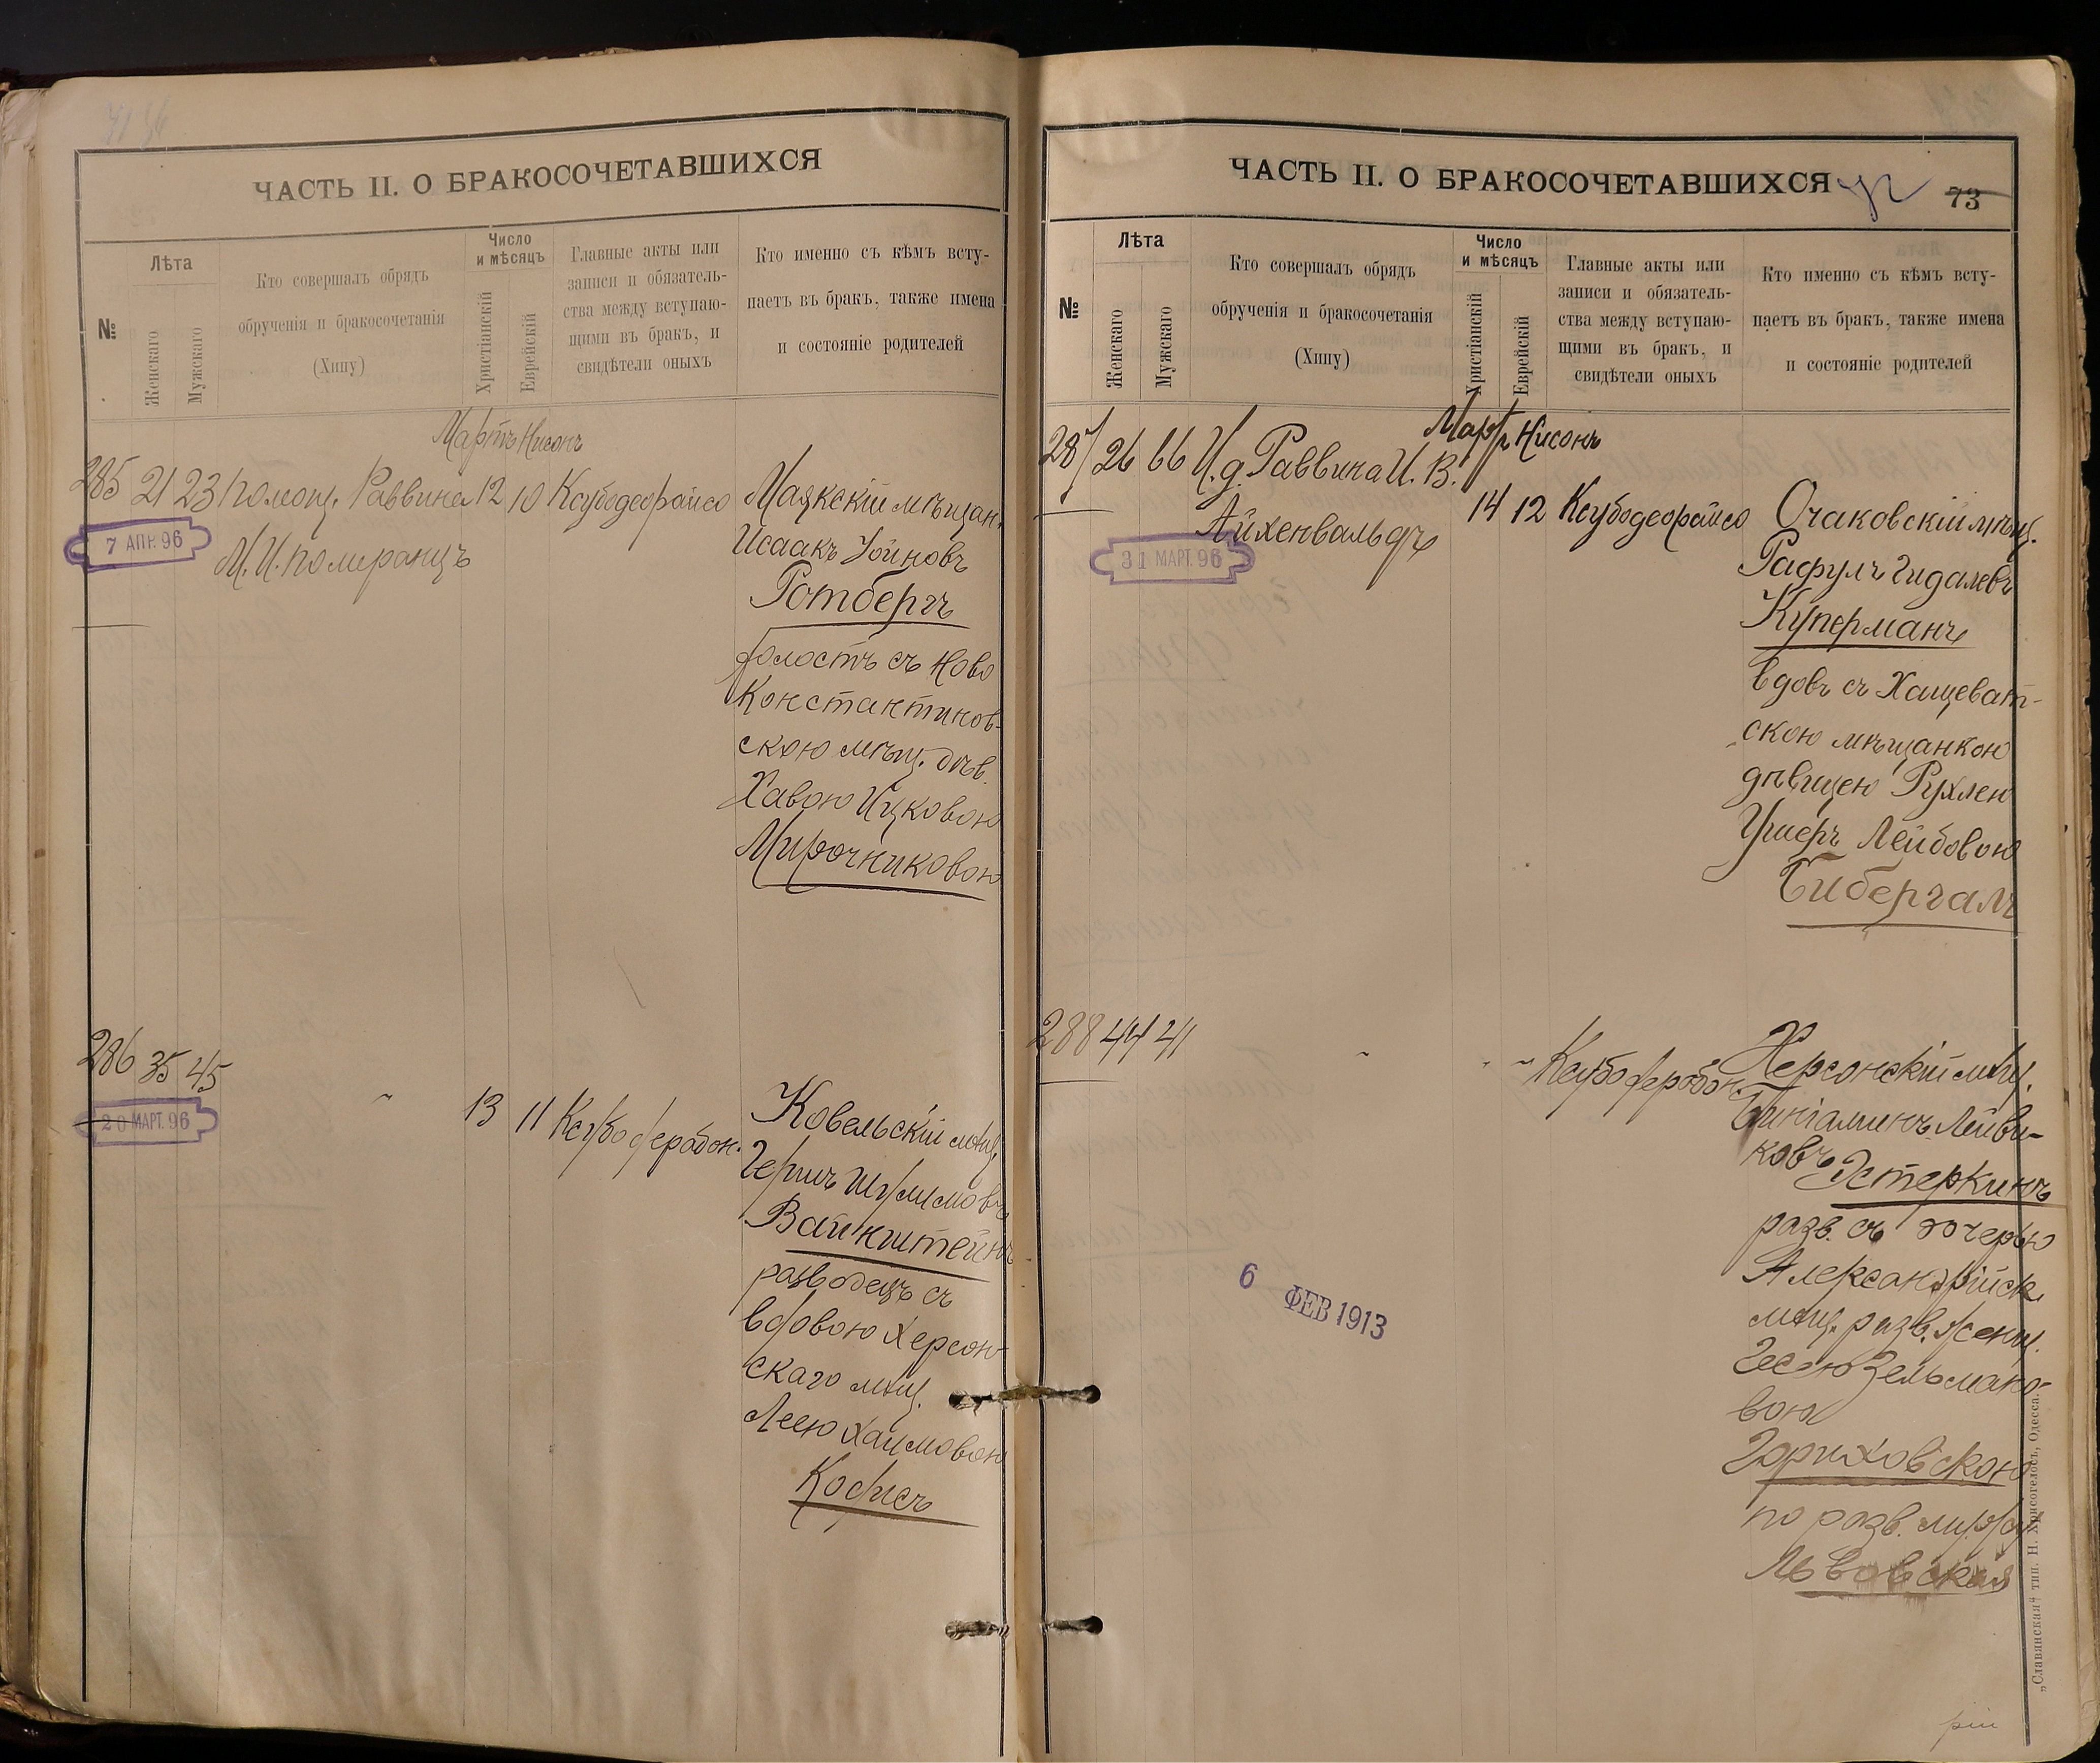 ЧАСТЬ II. О БРАКОСОЧЕТАВШИХСЯ
№
Лѣта
Женскаго
Мужскаго
Кто совершалъ обрядъ
обрученія и бракосочетанія
(Хипу)
Число
и мѣсяцъ
Христіанскій
Еврейскій
Главные акты или
записи и обязатель-
ства между вступаю-
щими въ бракъ, и
свидѣтели оныхъ
Кто именно съ кѣмъ всту-
паетъ въ бракъ, также имена
и состояніе родителей
Мартъ Нисонъ
285 21 23 Помощ. Раввина 12 10 Ксубодеорайсо
7 АПР. 96
М. И. Померанцъ
Маякскій мѣщан.
Исаакъ Уйновъ
Ротбергъ
холостъ съ Ново
Константинов-
скою мѣщ. дѣв.
Хавою Ицковою
Мирочниковою
286 35 45 " 13 11 Ксубодерабон.
20 МАРТ. 96
Ковельскій мѣщ.
Гершъ Шулимовъ
Вайнштейнъ
разводецъ съ
вдовою Херсон-
скаго мѣщ.
Леею Хаимовою
Кофисъ
ЧАСТЬ II. О БРАКОСОЧЕТАВШИХСЯ
73
№
Лѣта
Женскаго
Мужскаго
Кто совершалъ обрядъ
обрученія и бракосочетанія
(Хипу)
Число
и мѣсяцъ
Христіанскій
Еврейскій
Главные акты или
записи и обязатель-
ства между вступаю-
щими въ бракъ, и
свидѣтели оныхъ
Кто именно съ кѣмъ всту-
паетъ въ бракъ, также имена
и состояніе родителей
Мартъ Нисонъ
287 26 66 И. д. Раввина И. В.
Айхенвальдъ
14 12 Ксубодеорайсо
31 МАРТ. 96
Очаковскій мѣщ.
Рафулъ Гидалевъ
Куперманъ
вдовъ съ Хащеват-
скою мѣщанкою
дѣвицею Рухлею
Ушеръ Лейбовою
Бибергалъ
288 44 41 " " " Ксубодерабон.
Херсонскій мѣщ.
Биніаминъ Лейви-
ковъ Эстеркинъ
разв. съ дочерью
Александрійск.
мѣщ. разв. женщ.
Гесею Зельмано-
вою
Гориховскою
по разв. мужу
Львовская
6 ФЕВ 1913
„Славянская“ тип. Н. Хрисогелосъ, Одесса.